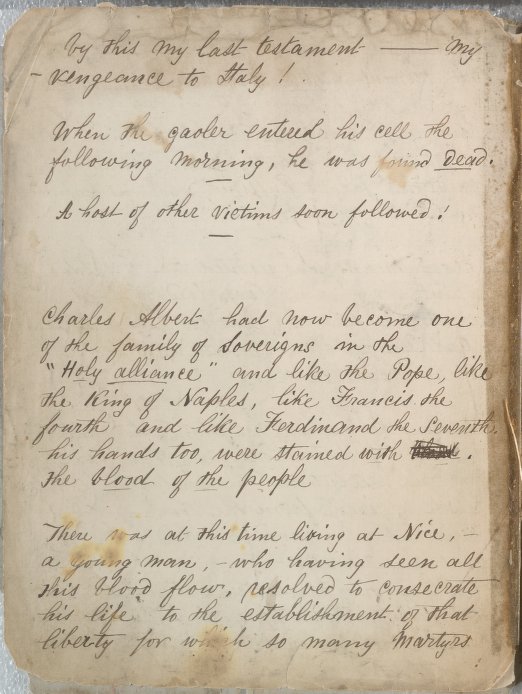 by this my last testament —— my
- vengeance to Italy!
When the gaoler entered his cell the
following morning, he was found dead.
A host of other victims soon followed!
Charles Albert had now become one
of the family of Soverigns in the
"Holy alliance" and like the Pope, like
the King of Naples, like Francis the
fourth and like Ferdinand the Seventh
his hands too, were stained with .
the blood of the people
There was at this time living at Nice, -
a young man, - who having seen all
this blood flow, resolved to consecrate
his life to the establishment of that
liberty for which so many Martyrs